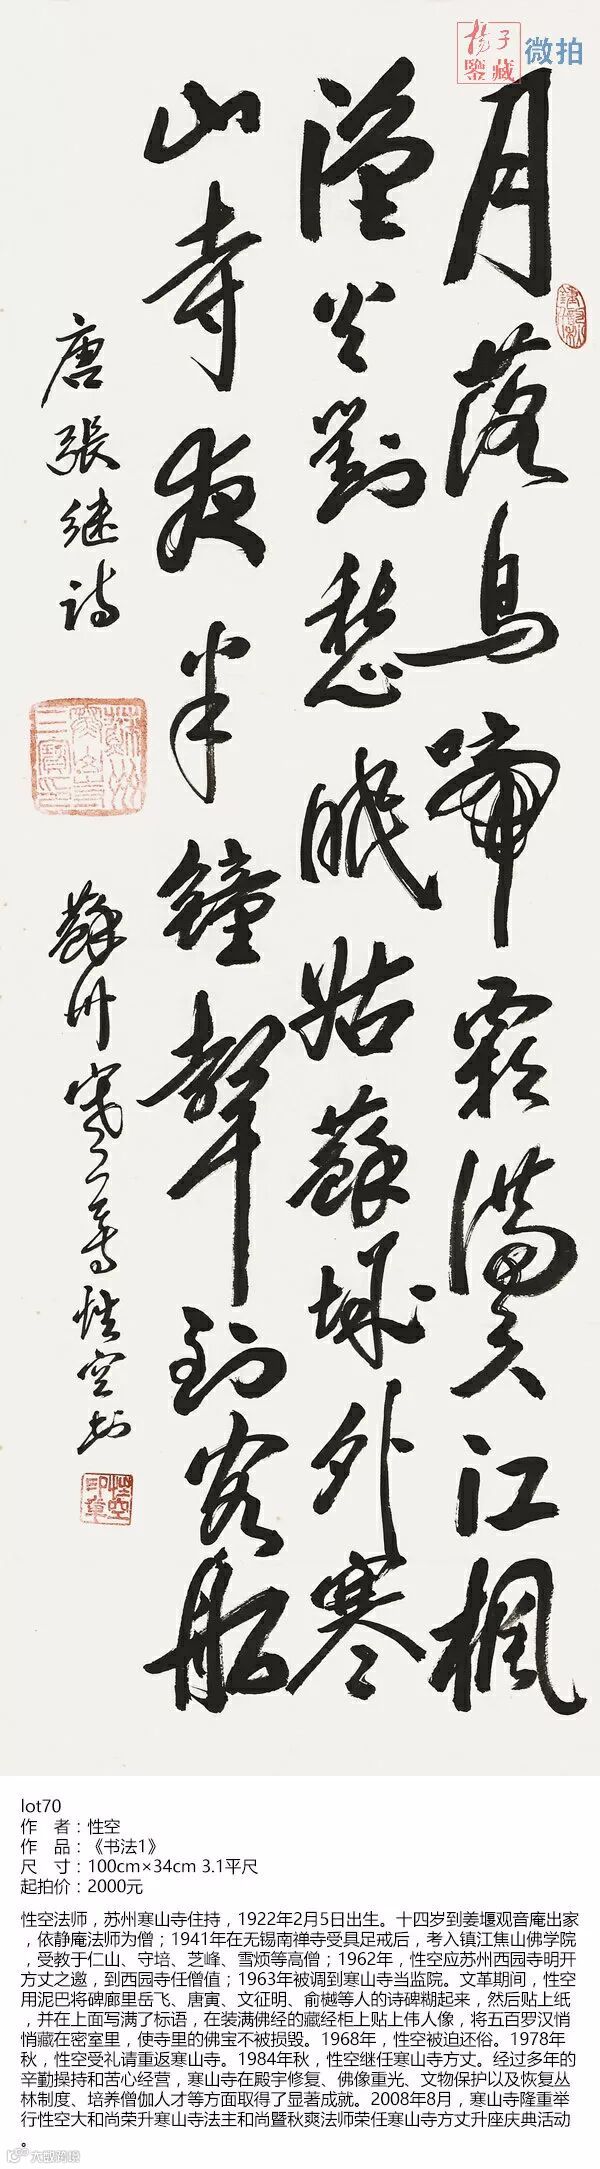 扬子
鑒藏
微拍
月落烏啼霜滿天江楓
漁火對愁眠姑蘇城外寒
山寺夜半鐘聲到客船
唐張继诗
蘇州寒山寺性空书
性空印章
lot70
作　者：性空
作　品：《书法1》
尺　寸：100cm×34cm 3.1平尺
起拍价：2000元
性空法师，苏州寒山寺住持，1922年2月5日出生。十四岁到姜堰观音庵出家
，依静庵法师为僧；1941年在无锡南禅寺受具足戒后，考入镇江焦山佛学院
，受教于仁山、守培、芝峰、雪烦等高僧；1962年，性空应苏州西园寺明开
方丈之邀，到西园寺任僧值；1963年被调到寒山寺当监院。文革期间，性空
用泥巴将碑廊里岳飞、唐寅、文征明、俞樾等人的诗碑糊起来，然后贴上纸
，并在上面写满了标语，在装满佛经的藏经柜上贴上伟人像，将五百罗汉悄
悄藏在密室里，使寺里的佛宝不被损毁。1968年，性空被迫还俗。1978年
秋，性空受礼请重返寒山寺。1984年秋，性空继任寒山寺方丈。经过多年的
辛勤操持和苦心经营，寒山寺在殿宇修复、佛像重光、文物保护以及恢复丛
林制度、培养僧伽人才等方面取得了显著成就。2008年8月，寒山寺隆重举
行性空大和尚荣升寒山寺法主和尚暨秋爽法师荣任寒山寺方丈升座庆典活动
。